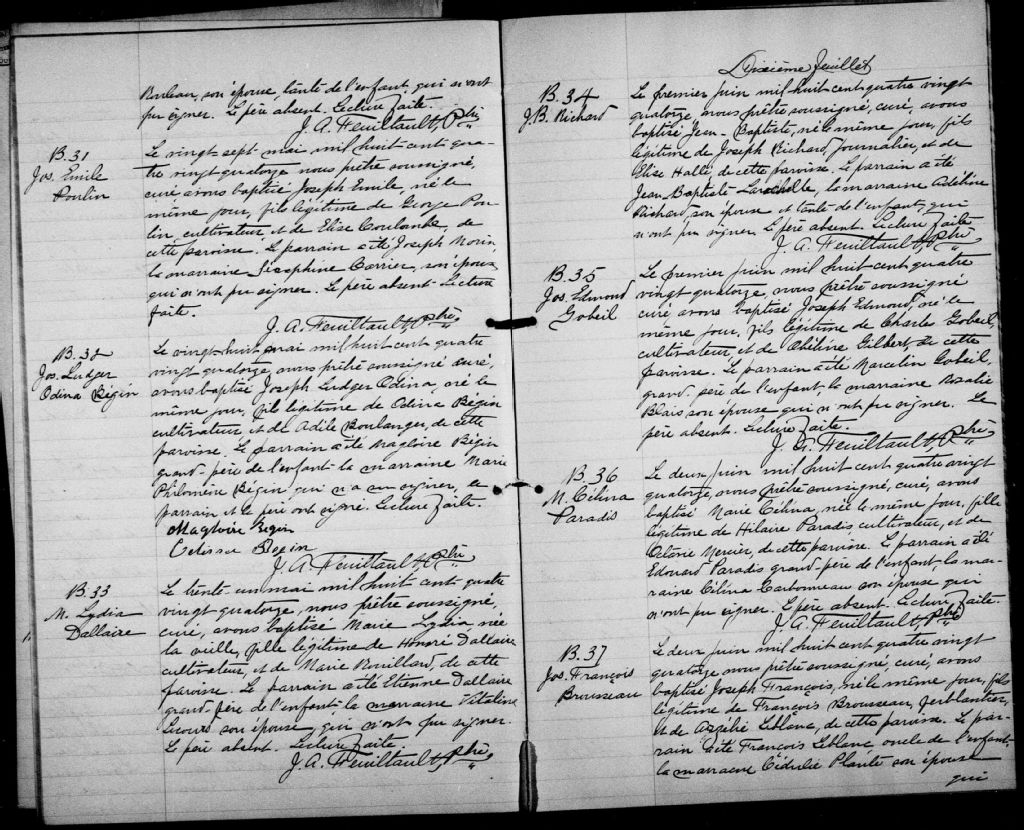 Bouleau, son épouse, tante de l'enfant, qui n'ont
pu signer. Le père absent. Lecture faite.
J. A. Feuiltault, Ptre
B. 31
Jos. Emile
Poulin
Le vingt-sept mai mil huit-cent-qua-
tre vingt quatorze nous prêtre soussigné,
curé avons baptisé Joseph Emile, né le
même jour, fils légitime de George Pou
lin, cultivateur et de Elise Coulombe, de
cette paroisse. Le parrain a été Joseph Morin,
la marraine Joséphine Carrier, son épouse,
qui n'ont pu signer. Le père absent. Lecture
faite.
J. A. Feuiltault, Ptre
B. 32
Jos. Ludger
Odina Bégin
Le vingt-huit mai mil huit cent quatre
vingt quatorze, nous prêtre soussigné curé,
avons baptisé Joseph Ludger Odina, né le
même jour, fils légitime de Odina Bégin
cultivateur et de Adile Boulanger, de cette
paroisse. Le parrain a été Magloire Bégin
grand-père de l'enfant la marraine Marie
Philomène Bégin, qui n'a su signer, le
parrain et le père ont signé. Lecture faite.
Magloire Begin
Begin
J. A. Feuiltault, Ptre
B. 33
M. Lydia
Dallaire
Le trente-un mai mil huit cent quatre
vingt-quatorze, nous prêtre soussigné,
curé, avons baptisé Marie Lydia, née
la veille, fille légitime de Honoré Dallaire
cultivateur, et de Marie Rouillard, de cette
paroisse. Le parrain a été Etienne Dallaire
grand-père de l'enfant la marraine Vitaline
son épouse, qui n'ont pu signer.
Le père absent. Lecture faite.
J. A. Feuiltault, Ptre
Dixième feuillet
B. 34
J. B. Richard
Le premier juin mil huit-cent quatre vingt
quatorze, nous prêtre soussigné, curé, avons
baptisé Jean-Baptiste, né le même jour, fils
légitime de Joseph Richard, Journalier, et de
Elise Hallé, de cette paroisse. Le parrain a été
Jean Baptiste Larochelle, la marraine Adéline
Richard, son épouse et tante de l'enfant, qui
n'ont pu signer. Le père absent. Lecture faite
J. A. Feuiltault, Ptre
B. 35
Jos. Edmond
Gobeil
Le premier juin mil huit cent quatre
vingt quatorze, nous prêtre soussigné
curé avons baptisé Joseph Edmond, né le
même jour, fils légitime de Charles Gobeil,
cultivateur, et de Gilbert, de cette
paroisse. Le parrain a été Marcelin Gobeil,
grand-père de l'enfant, la marraine Rosalie
Blais son épouse qui n'ont pu signer. Le
père absent. Lecture faite.
J. A. Feuiltault, Ptre
B. 36
M. Célina
Paradis
Le deux juin mil huit cent quatre vingt
quatorze, nous prêtre soussigné, curé, avons
baptisé Marie Célina, née le même jour, fille
légitime de Hilaire Paradis cultivateur, et de
Mercier, de cette paroisse. Le parrain a été
Edouard Paradis grand-père de l'enfant la mar
raine Célina Carbonneau son épouse qui
n'ont pu signer. Le père absent. Lecture faite.
J. A. Feuiltault, Ptre
B. 37
Jos. François
Brousseau
Le deux juin mil huit cent quatre vingt
quatorze nous prêtre soussigné, curé, avons
baptisé Joseph François, né le même jour, fils
légitime de François Brousseau, ferblantier,
et de Leblanc, de cette paroisse. Le par-
rain a été François Leblanc, oncle de l'enfant,
la marraine Cédulie Plante son épouse
qui